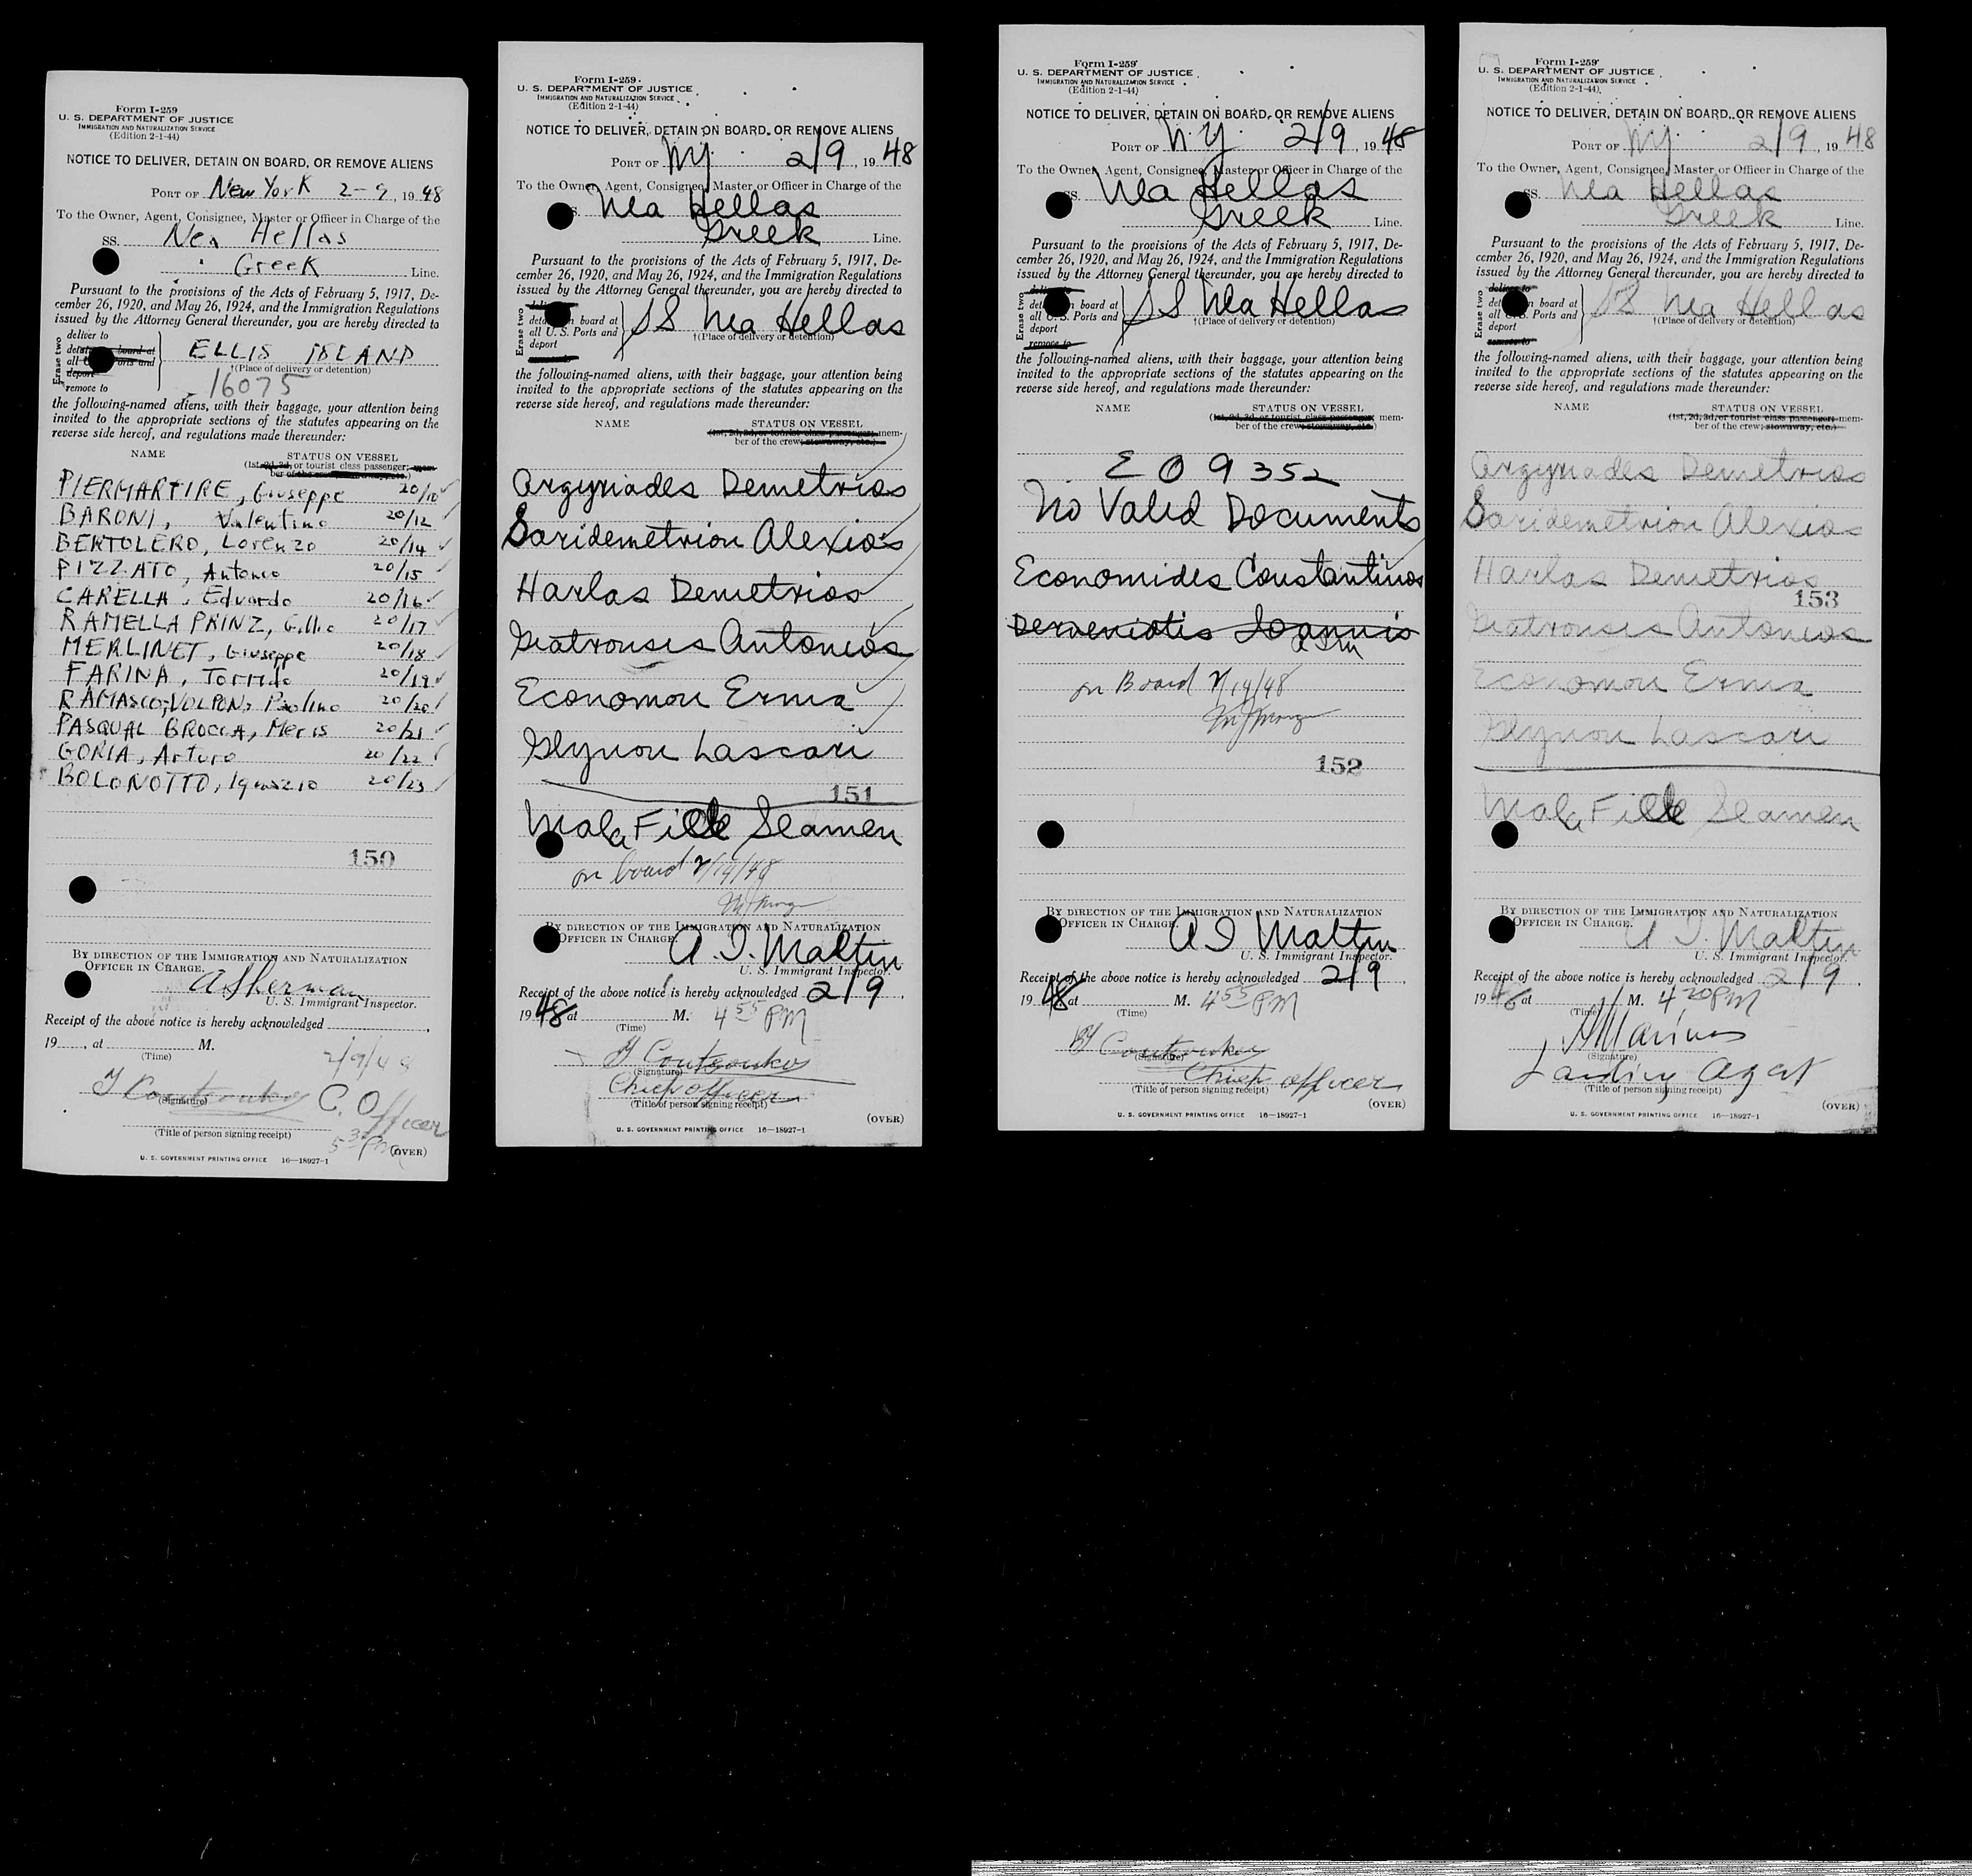 Form I-259
U. S. DEPARTMENT OF JUSTICE
IMMIGRATION AND NATURALIZATION SERVICE
(Edition 2-1-44)
NOTICE TO DELIVER, DETAIN ON BOARD, OR REMOVE ALIENS
PORT OF New York 2-9, 1948
To the Owner, Agent, Consignee, Master or Officer in Charge of the
SS. Nea Hellas
Greek Line.
Pursuant to the provisions of the Acts of February 5, 1917, De-
cember 26, 1920, and May 26, 1924, and the Immigration Regulations
issued by the Attorney General thereunder, you are hereby directed to
Erase two
deliver to
board at ELLIS ISLAND
all ports and †(Place of delivery or detention)
deport 16075
remove to
the following-named aliens, with their baggage, your attention being
invited to the appropriate sections of the statutes appearing on the
reverse side hereof, and regulations made thereunder:
NAME STATUS ON VESSEL
(1st, 2d, 3d, or tourist class passenger; mem-
ber of the
PIERMARTIRE, Giuseppe 20/10
BARONI, Valentino 20/12
BERTOLERO, Lorenzo 20/14
PIZZATO, Antonio 20/15
CARELLA, Eduardo 20/16
RAMELLA PRINZ, 20/17
MERLINET, Giuseppe 20/18
FARINA, 20/19
RAMASCO, VOLPON, Paolino 20/20
PASQUAL BROCCA, Meris 20/21
GORIA, Arturo 20/22
BOLONOTTO, Ignazio 20/23
150
BY DIRECTION OF THE IMMIGRATION AND NATURALIZATION
OFFICER IN CHARGE.
A Sherman
U. S. Immigrant Inspector.
Receipt of the above notice is hereby acknowledged
19 , at M.
(Time) 2/9/48
C. Officer
(Signature)
(Title of person signing receipt) 5 30 PM
(OVER)
U. S. GOVERNMENT PRINTING OFFICE 16—18927-1
Form I-259
U. S. DEPARTMENT OF JUSTICE
IMMIGRATION AND NATURALIZATION SERVICE
(Edition 2-1-44)
NOTICE TO DELIVER, DETAIN ON BOARD, OR REMOVE ALIENS
PORT OF NY 2/9, 1948
To the Owner, Agent, Consignee, Master or Officer in Charge of the
Nea Hellas
Greek Line.
Pursuant to the provisions of the Acts of February 5, 1917, De-
cember 26, 1920, and May 26, 1924, and the Immigration Regulations
issued by the Attorney General thereunder, you are hereby directed to
Erase two
board at SS Nea Hellas
all U. S. Ports and †(Place of delivery or detention)
deport
the following-named aliens, with their baggage, your attention being
invited to the appropriate sections of the statutes appearing on the
reverse side hereof, and regulations made thereunder:
NAME STATUS ON VESSEL
(1st, 2d, 3d, or tourist class passenger; mem-
ber of the crew; stowaway, etc.)
Argyriades Demetrios
Saridemetriou Alexios
Harlas Demetrios
Giatrousis Antonios
Economou Erma
Glynou Lascari
151
Mala Fide Seamen
on board 2/14/48
BY DIRECTION OF THE IMMIGRATION AND NATURALIZATION
OFFICER IN CHARGE.
A. I. Maltin
U. S. Immigrant Inspector.
Receipt of the above notice is hereby acknowledged 2/9
1948 at M. 4 55 PM
(Time)
(Signature)
Chief officer
(Title of person signing receipt)
(OVER)
U. S. GOVERNMENT PRINTING OFFICE 16—18927-1
Form I-259
U. S. DEPARTMENT OF JUSTICE
IMMIGRATION AND NATURALIZATION SERVICE
(Edition 2-1-44)
NOTICE TO DELIVER, DETAIN ON BOARD, OR REMOVE ALIENS
PORT OF N.Y. 2/9, 1948
To the Owner, Agent, Consignee, Master or Officer in Charge of the
SS. Nea Hellas
Greek Line.
Pursuant to the provisions of the Acts of February 5, 1917, De-
cember 26, 1920, and May 26, 1924, and the Immigration Regulations
issued by the Attorney General thereunder, you are hereby directed to
Erase two
deliver to
board at SS Nea Hellas
all U. S. Ports and †(Place of delivery or detention)
deport
remove to
the following-named aliens, with their baggage, your attention being
invited to the appropriate sections of the statutes appearing on the
reverse side hereof, and regulations made thereunder:
NAME STATUS ON VESSEL
(1st, 2d, 3d, or tourist class passenger; mem-
ber of the crew; stowaway, etc.)
E O 9352
No Valid Documents
Economides Constantinos
Derveniotis Ioannis
on Board 2/14/48
152
BY DIRECTION OF THE IMMIGRATION AND NATURALIZATION
OFFICER IN CHARGE.
A I Maltin
U. S. Immigrant Inspector.
Receipt of the above notice is hereby acknowledged 2/9
1948 at M. 4 55 PM
(Time)
(Signature)
Chief officer
(Title of person signing receipt)
(OVER)
U. S. GOVERNMENT PRINTING OFFICE 16—18927-1
Form I-259
U. S. DEPARTMENT OF JUSTICE
IMMIGRATION AND NATURALIZATION SERVICE
(Edition 2-1-44)
NOTICE TO DELIVER, DETAIN ON BOARD, OR REMOVE ALIENS
PORT OF NY 2/9, 1948
To the Owner, Agent, Consignee, Master or Officer in Charge of the
SS. Nea Hellas
Greek Line.
Pursuant to the provisions of the Acts of February 5, 1917, De-
cember 26, 1920, and May 26, 1924, and the Immigration Regulations
issued by the Attorney General thereunder, you are hereby directed to
Erase two
deliver to
board at SS Nea Hellas
all U. S. Ports and †(Place of delivery or detention)
deport
remove to
the following-named aliens, with their baggage, your attention being
invited to the appropriate sections of the statutes appearing on the
reverse side hereof, and regulations made thereunder:
NAME STATUS ON VESSEL
(1st, 2d, 3d, or tourist class passenger; mem-
ber of the crew; stowaway, etc.)
Argyriades Demetrios
Saridemetriou Alexios
Harlas Demetrios
153
Giatrousis Antonios
Economou Erma
Glynou Lascari
Mala Fide Seamen
BY DIRECTION OF THE IMMIGRATION AND NATURALIZATION
OFFICER IN CHARGE.
A I. Maltin
U. S. Immigrant Inspector.
Receipt of the above notice is hereby acknowledged 2/9
1948 at M. 4 20 PM
(Time)
(Signature)
Landing Agent
(Title of person signing receipt)
(OVER)
U. S. GOVERNMENT PRINTING OFFICE 16—18927-1